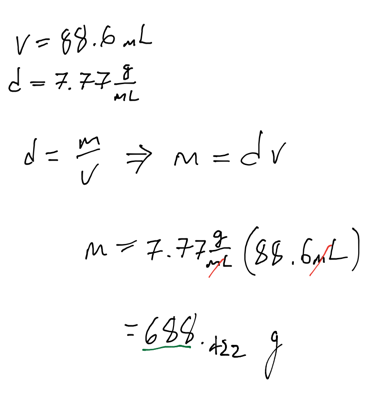 V = 88.6 mL
d = 7.77 g/mL
d = m/V ⇒ m = dV
m = 7.77 g/mL (88.6 mL)
= 688.422 g